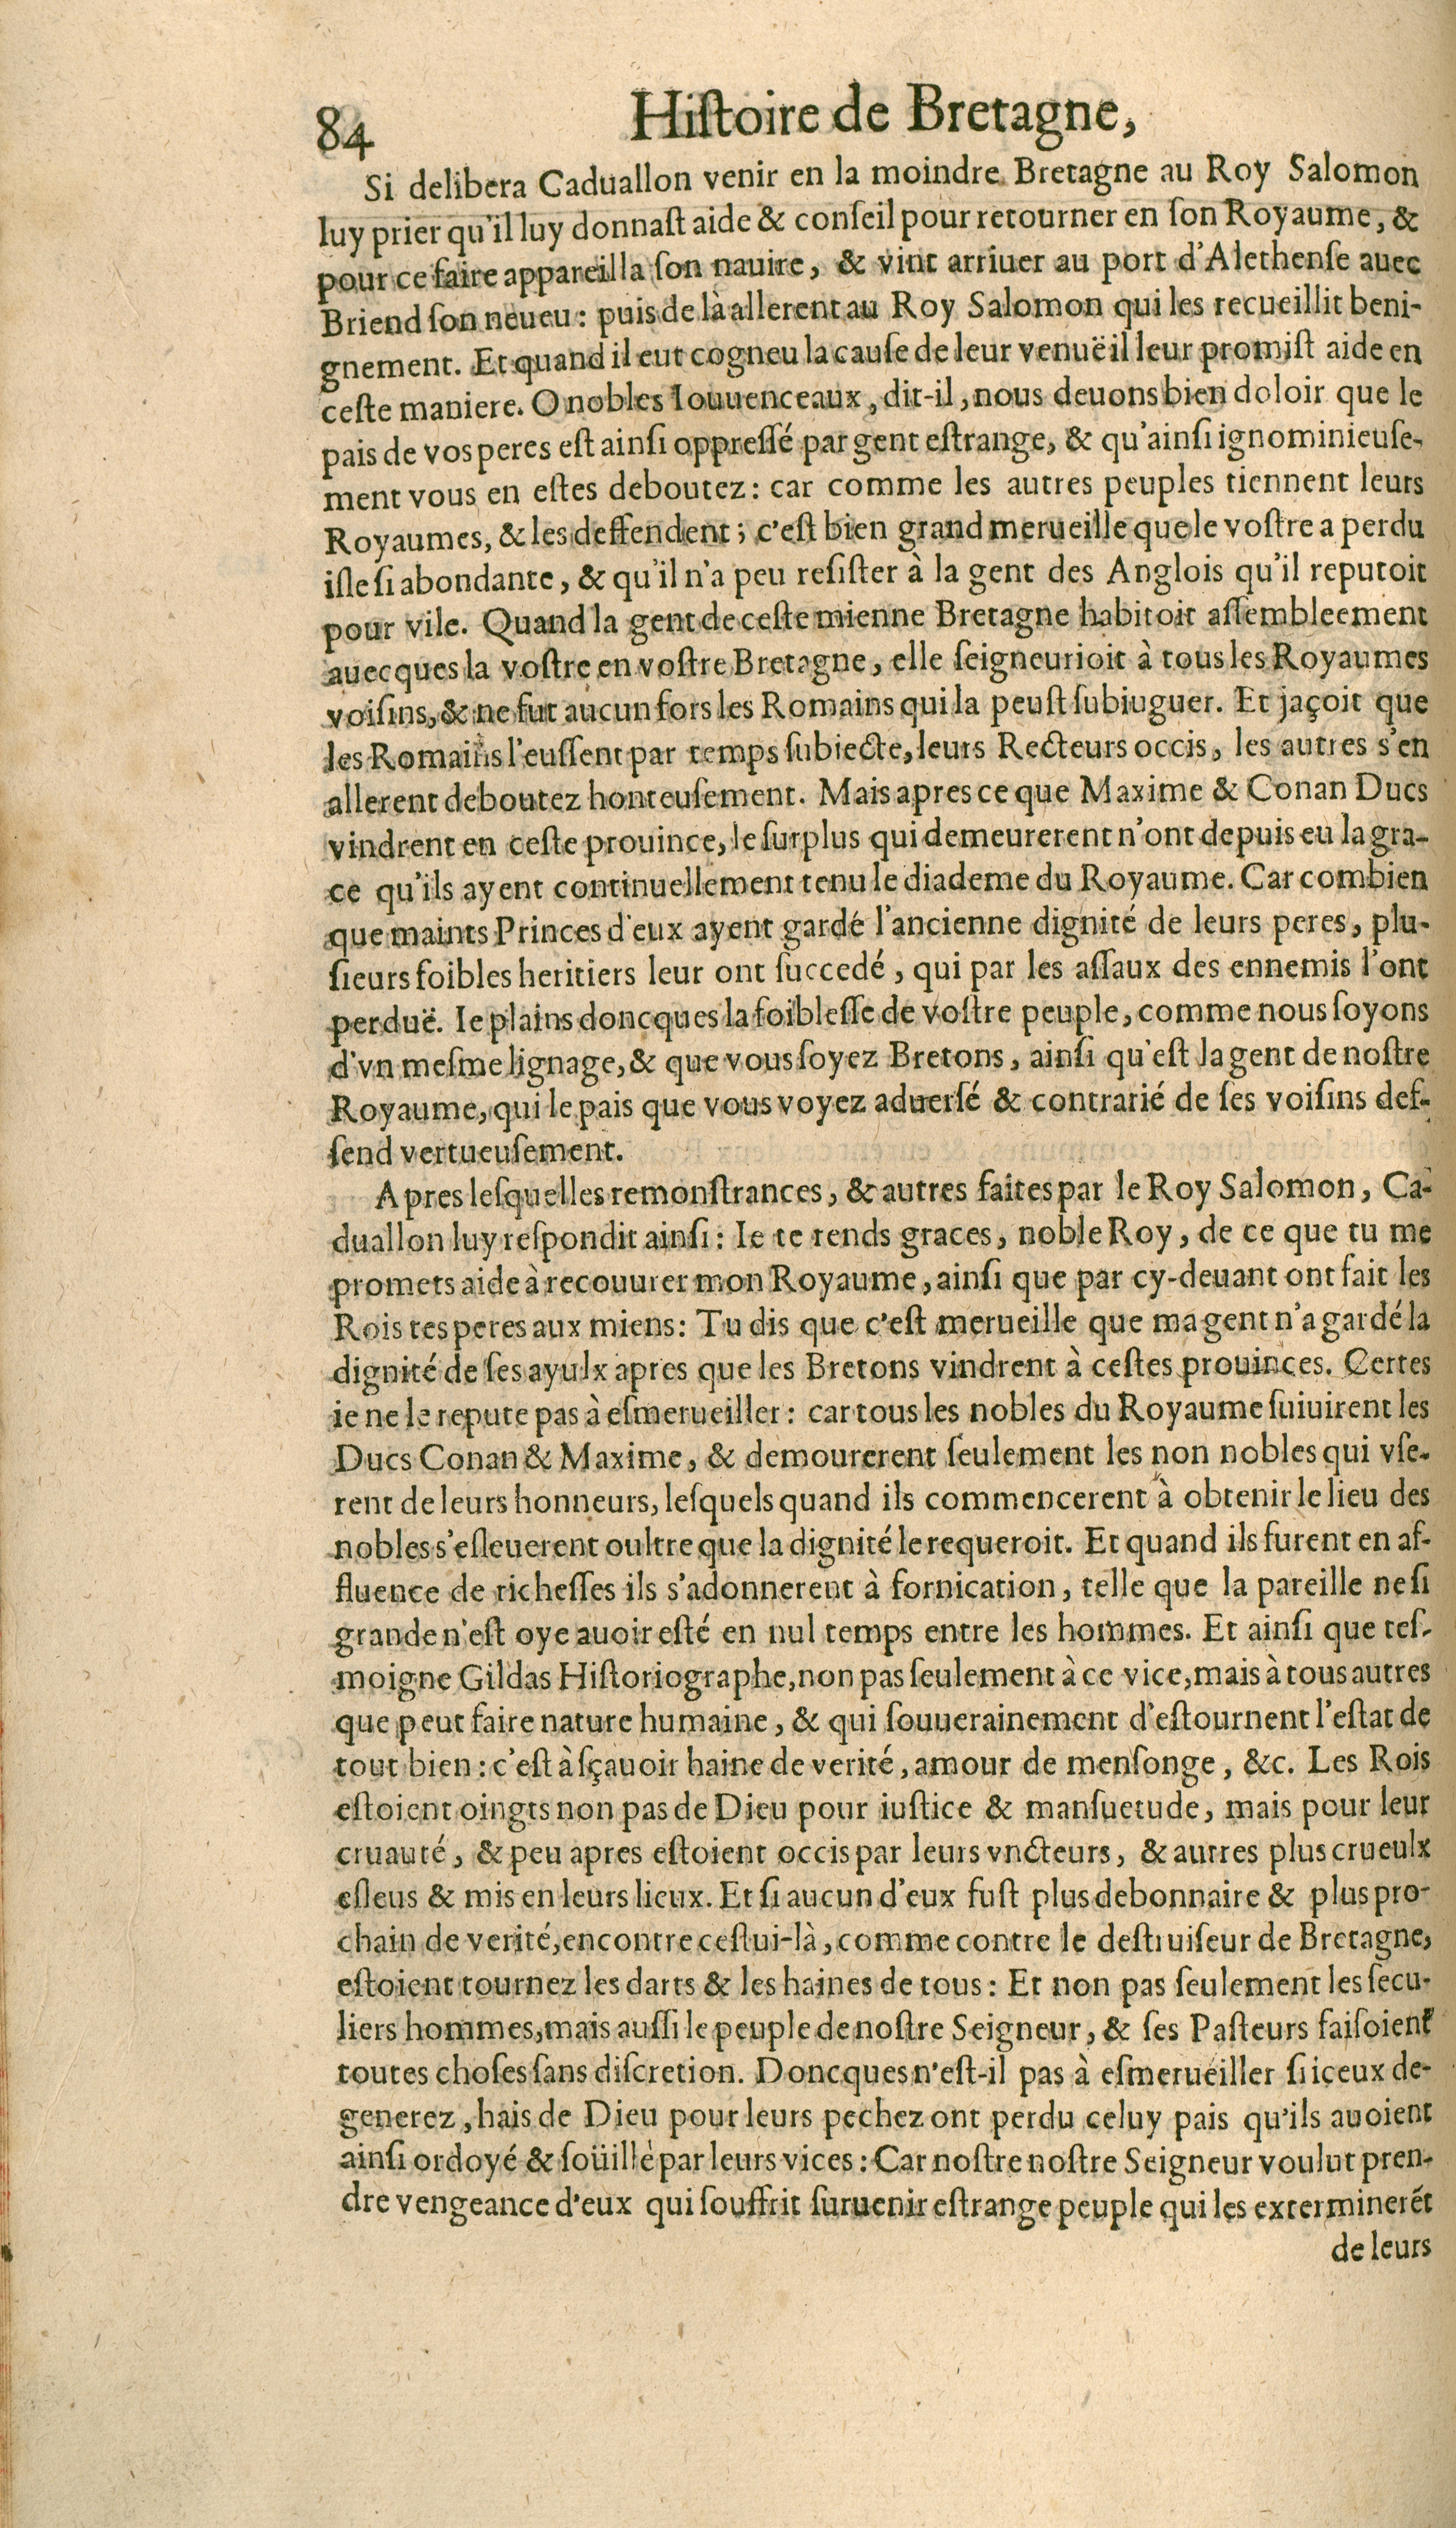 84 Hiſtoire de Bretagne,
Si delibera Caduallon venir en la moindre Bretagne au Roy Salomon
luy prier qu'il luy donnaſt aide & conſeil pour retourner en ſon Royaume, &
pour ce faire appareilla ſon nauire, & vint arriuer au port d'Alethenſe auec
Briend ſon neueu: puis de là allerent au Roy Salomon qui les recueillit beni-
gnement. Et quand il eut cogneu la cauſe de leur venuë il leur promiſt aide en
ceſte maniere. O nobles Iouuenceaux, dit-il, nous deuons bien doloir que le
pais de vos peres eſt ainſi oppreſſé par gent eſtrange, & qu'ainſi ignominieuſe-
ment vous en eſtes deboutez: car comme les autres peuples tiennent leurs
Royaumes, & les deffendent; c'eſt bien grand merueille que le voſtre a perdu
iſle ſi abondante, & qu'il n'a peu reſiſter à la gent des Anglois qu'il reputoit
pour vile. Quand la gent de ceſte mienne Bretagne habitoit aſſembleement
auecques la voſtre en voſtre Bretagne, elle ſeigneurioit à tous les Royaumes
voiſins, & ne fut aucun fors les Romains qui la peuſt ſubiuguer. Et jaçoit que
les Romains l'euſſent par temps ſubiecte, leurs Recteurs occis, les autres s'en
allerent deboutez honteuſement. Mais apres ce que Maxime & Conan Ducs
vindrent en ceſte prouince, le ſurplus qui demeurerent n'ont depuis eu la gra-
ce qu'ils ayent continuellement tenu le diademe du Royaume. Car combien
que maints Princes d'eux ayent gardé l'ancienne dignité de leurs peres, plu-
ſieurs foibles heritiers leur ont ſuccedé, qui par les aſſaux des ennemis l'ont
perduë. Ie plains doncques la foibleſſe de voſtre peuple, comme nous ſoyons
d'vn meſme lignage, & que vous ſoyez Bretons, ainſi qu'eſt la gent de noſtre
Royaume, qui le pais que vous voyez aduerſé & contrarié de ſes voiſins def-
fend vertueuſement.
Apres leſquelles remonſtrances, & autres faites par le Roy Salomon, Ca-
duallon luy reſpondit ainſi: Ie te rends graces, noble Roy, de ce que tu me
promets aide à recouurer mon Royaume, ainſi que par cy-deuant ont fait les
Rois tes peres aux miens: Tu dis que c'eſt merueille que ma gent n'a gardé la
dignité de ſes ayulx apres que les Bretons vindrent à ceſtes prouinces. Certes
ie ne le repute pas à eſmerueiller: car tous les nobles du Royaume ſuiuirent les
Ducs Conan & Maxime, & demourerent ſeulement les non nobles qui vſe-
rent de leurs honneurs, leſquels quand ils commencerent à obtenir le lieu des
nobles s'eſleuerent oultre que la dignité le requeroit. Et quand ils furent en af-
fluence de richeſſes ils s'adonnerent à fornication, telle que la pareille ne ſi
grande n'eſt oye auoir eſté en nul temps entre les hommes. Et ainſi que teſ-
moigne Gildas Hiſtoriographe, non pas ſeulement à ce vice, mais à tous autres
que peut faire nature humaine, & qui ſouuerainement d'eſtournent l'eſtat de
tout bien: c'eſt à ſçauoir haine de verité, amour de menſonge, &c. Les Rois
eſtoient oingts non pas de Dieu pour iuſtice & manſuetude, mais pour leur
cruauté, & peu apres eſtoient occis par leurs vncteurs, & autres plus crueulx
eſleus & mis en leurs lieux. Et ſi aucun d'eux fuſt plus debonnaire & plus pro-
chain de verité, encontre ceſtui-là, comme contre le deſtruiſeur de Bretagne,
eſtoient tournez les darts & les haines de tous: Et non pas ſeulement les ſecu-
liers hommes, mais auſſi le peuple de noſtre Seigneur, & ſes Paſteurs faiſoient
toutes choſes ſans diſcretion. Doncques n'eſt-il pas à eſmerueiller ſi iceux de-
generez, hais de Dieu pour leurs pechez ont perdu celuy pais qu'ils auoient
ainſi ordoyé & ſoüillé par leurs vices: Car noſtre noſtre Seigneur voulut pren-
dre vengeance d'eux qui ſouffrit ſuruenir eſtrange peuple qui les exterminerẽt
de leurs